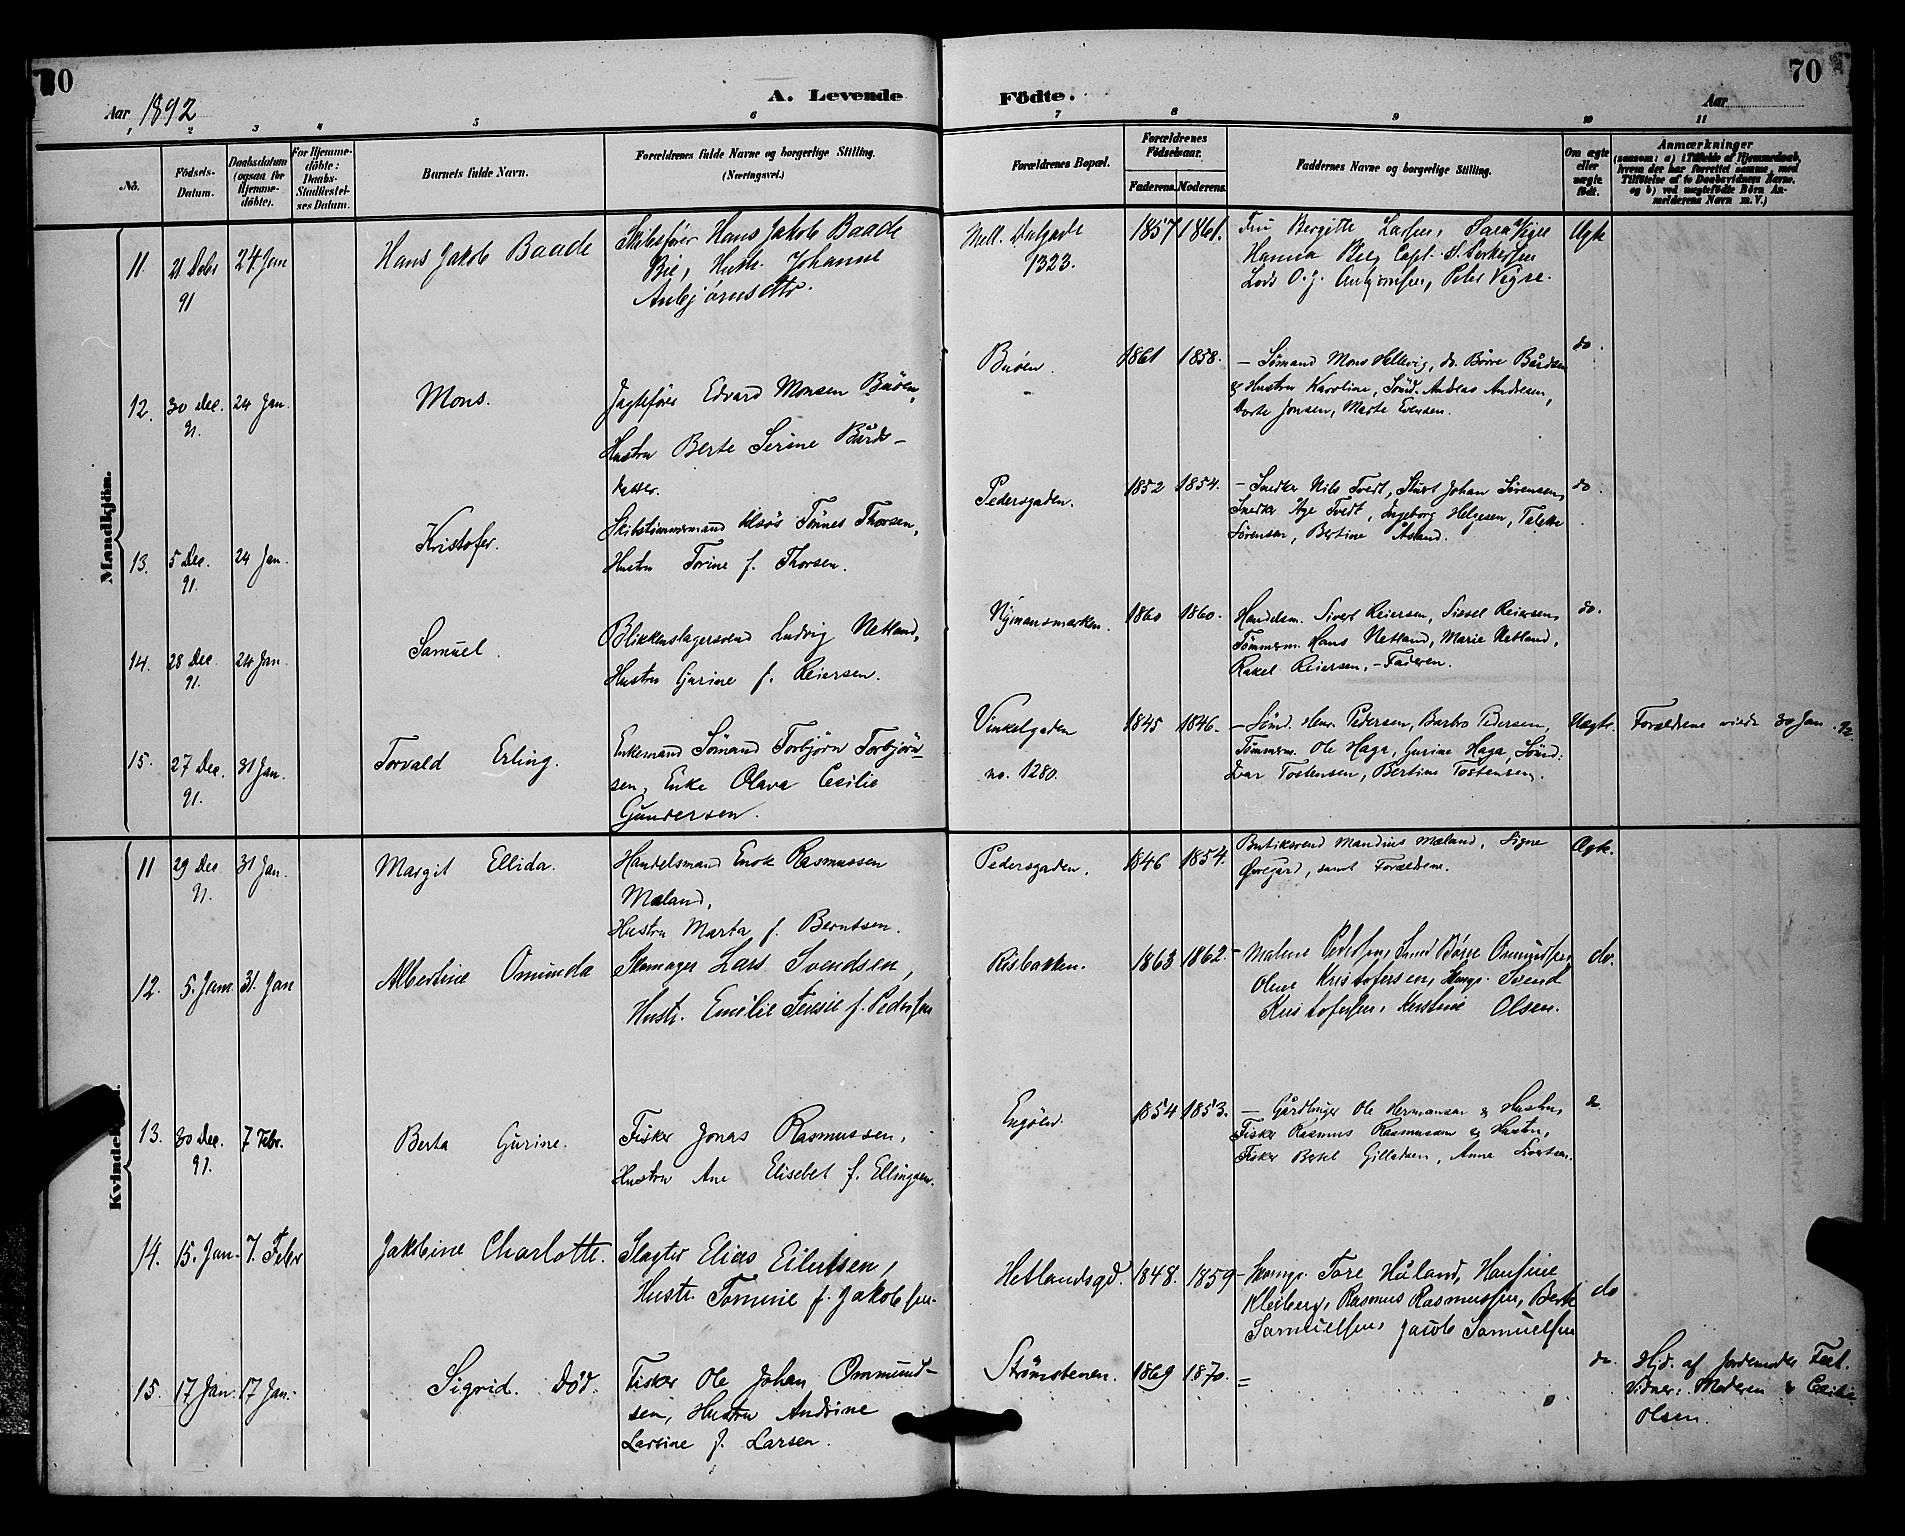 70
Aar 1892
A. Levende
Födte.
Aar
70
2 3 4 5 6 7 8 9 10 11
No.
Födsels-Datum.
Daabsdatum (ogsaa for Hjemmedöbte).
For Hjemmedöbte: Daabs-Stadfæstelses Datum.
Barnets fulde Navn.
Forældrenes fulde Navne og borgerlige Stilling.
(Næringsvei.)
Forældrenes Bopæl.
Forældrenes Födselsaar.
Faderens. Moderens.
Faddernes Navne og borgerlige Stilling.
Om ægte eller uægte födt.
Anmærkninger
(saasom: a) i Tilfælde af Hjemmedaab, hvem der har forrettet samme, med Tilföielse af to Daabsvidners Navne, og b) ved uægtefödte Börn Anmelderens Navn m. V.)
Mandkjön.
11. 21 Debr 91 24 Jan Hans Jakob Baade
Skibsfører Hans Jakob Baade
Bie, Hustr. Johanne
Anbjørnsdttr.
Mell. Dalgade
1323.
1857 1861.
Fru Bergitte Larsen, Sara Vigre
Hanna Berg Capt. S.
Lods O. J. Anbjørnsen, Peter Vigre.
Ægte
12. 30 Dec. 91. 24 Jan. Mons.
Jagtefører Edvard Monsen Buøen,
Hustru Berte Serine Bårds-
datter.
Buøen.
1861 1858.
- Sømand Mons Hellevig, do. Børre Bårdsen
& Hustru Karoline, Sømd. Andreas Andresen,
Dorte Jonsen, Marte Evensen.
do.
13. 5 Dec. 91. 24 Jan. Kristofer.
Skibstømmermand Klaås Tönnes Thorsen,
Hustru Torine f. Thorsen.
Pedersgaden.
1852 1854.
- Snedker Nils Tvedt, Johan Sørensen,
Snedker Åge Tvedt, Ingeborg Helgesen,
Sørensen, Bertine Åsland.
do.
14. 28 Dec. 91. 24 Jan. Samuel.
Blikkenslagersvend Ludvig Netland,
Hustru Gurine f. Reiersen.
Nymansmarken.
1860 1860.
Handelsm. Sivert Reiersen, Sissel Reiersen,
Tømmerm. Hans Netland, Marie Netland,
Rakel Reiersen, - Faderen.
do.
15. 27 Dec. 91. 31 Jan. Torvald Erling.
Enkemand Sömand Torbjörn Torbjörn-
sen, Enke Olava Cecilie
Gundersen.
Vinkelgaden
no. 1280.
1845 1846.
- Sömd. Pedersen, Barbro Pedersen,
Tømmerm. Ole Haga, Gurine Haga, Sömd.
Ivar Tostensen, Bertine Tostensen.
Uægte.
Forældrene viede 30 Jan. 92.
Kvindek
11 29 Dec 91. 31 Jan. Margit Ellida.
Handelsmand Enok Rasmussen
Mæland,
Hustru Marta f. Berntsen.
Pedersgaden.
1846 1854.
Butiksvend Mandius Mæland, Signe
Øvregård, samt Forældrene.
Ægte.
12. 5. Jan 31. Jan Albertine Omunda
Skomager Lars Svendsen,
Hustr. Emilie f. Pedersen
Risbakken.
1863 1862
- Malene Pedersen, Smed Børre Omundsen,
Olene Kristofersen, Skomgr. Svend
Kristofersen, Kirstine Olsen.
do.
13. 30 Dec. 91. 7 Febr. Berta Gurine.
Fisker Jonas Rasmussen,
Hustru Ane Elisebet f. Ellingsen.
Engöen.
1854 1853.
- Gårdbruger Ole Hermansen & Hustru,
Fisker Rasmus Rasmussen & Hustru,
Fisker Bertel Gilladsen, Anna Sivertsen.
do.
14. 15. Jan. 7. Febr Jakobine Charlotte.
Slagter Elias Eilertsen,
Hustr. Tomine f. Jakobsen.
Hetlandsgd.
1848. 1859
- Skomgr. Tore Håland, Hansine
Kleiberg, Rasmus Rasmussen, Berte
Samuelsen, Jacob Samuelsen
do
15. 17 Jan. 17 Jan. Sigrid. Död.
Fisker Ole Johan Ommund-
sen, Hustru Andrine
Larsine f. Larsen.
Strömstenen.
1869 1870.
=
do.
Hjd. af Jordemoder Tvet.
Vidner: Moderen &
Olsen.